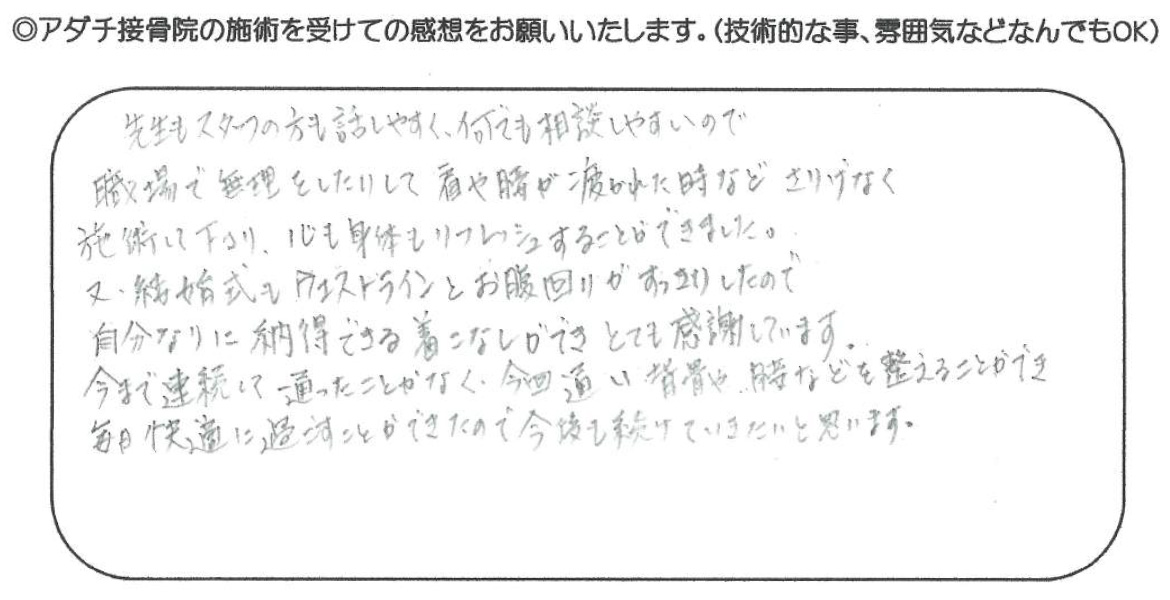 ◎アダチ接骨院の施術を受けての感想をお願いいたします。(技術的な事、雰囲気などなんでもOK)
先生もスタッフの方も話しやすく、何でも相談しやすいので
職場で無理をしたりして肩や腰が疲れた時など さりげなく
施術して下さり、心も身体もリフレッシュすることができました。
又、結婚式も ウエストラインとお腹回りがすっきりしたので
自分なりに納得できる着こなしができ とても感謝しています。
今まで連続して通ったことがなく、今回通い 背骨や 腰などを整えることができ
毎日快適に過ごすことができたので今後も続けていきたいと思います。